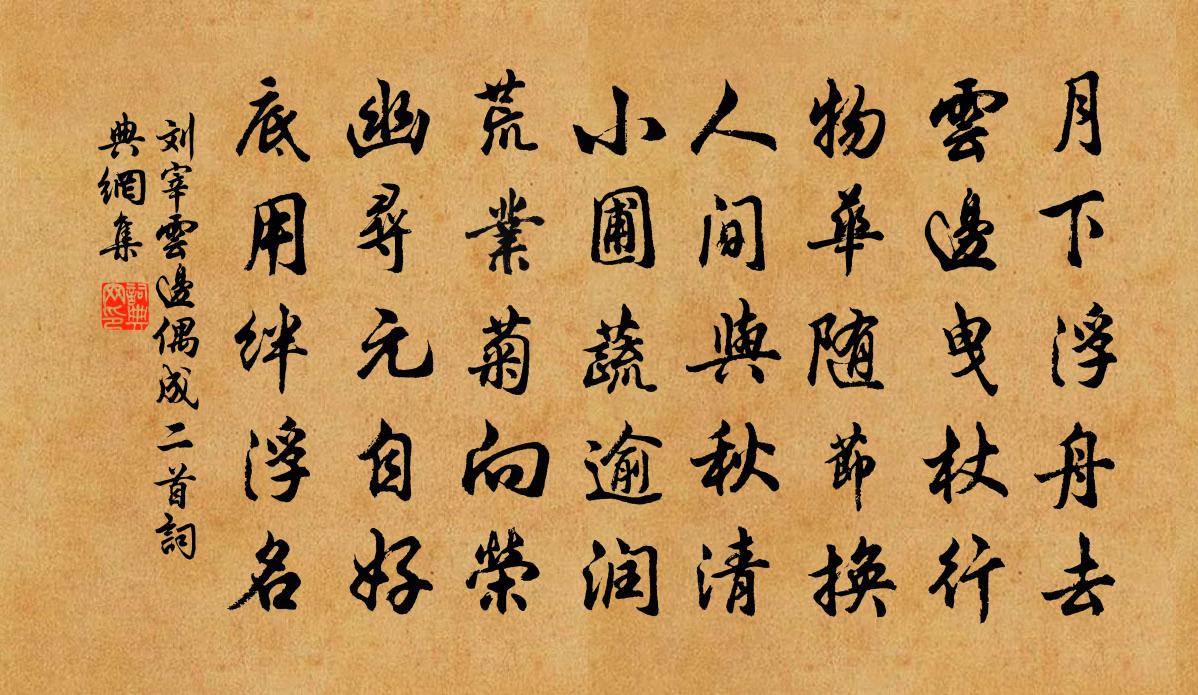 月下浮舟去
雲邊曳杖行
物華随節換
人間與秋清
小圃蔬逾润
荒業菊向榮
幽尋元自好
底用絆浮名
刘宰雲邊偶成二首詞
典網集
詞典
网印